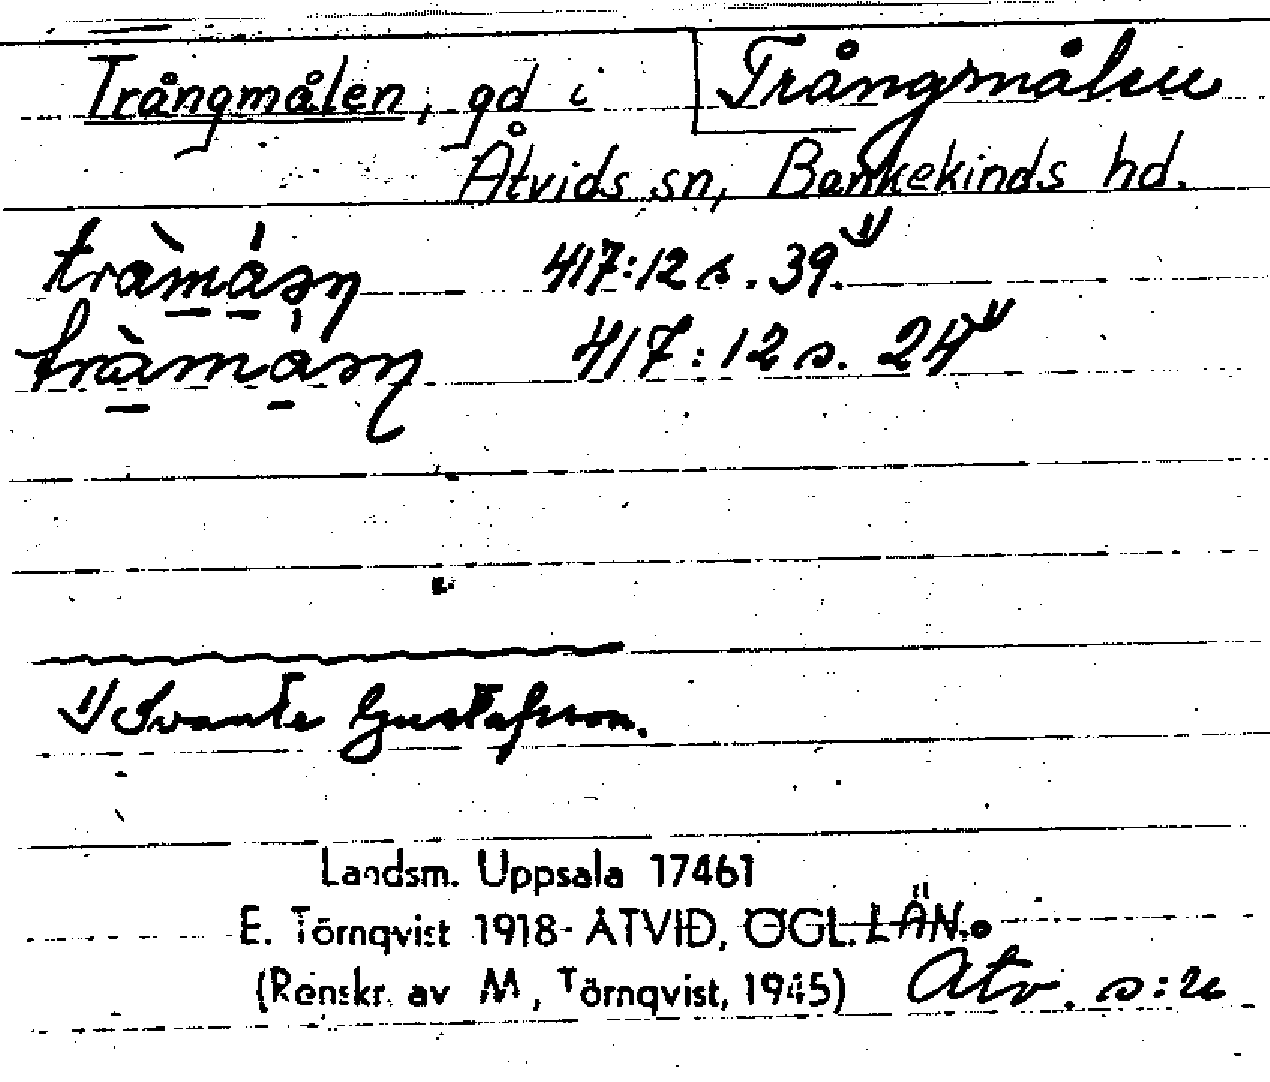 Trångmålen, gd i Trångsmålen
Åtvids sn, Bankekinds hd.
417:12 s. 39. 1)
417:12 s. 24 1)
1) Svante Gustafsson.
Landsm. Uppsala 17461
E. Törnqvist 1918- ÅTVID, ÖGL. LÄN.
(Renskr. av M, Törnqvist, 1945) Åtv. s:n